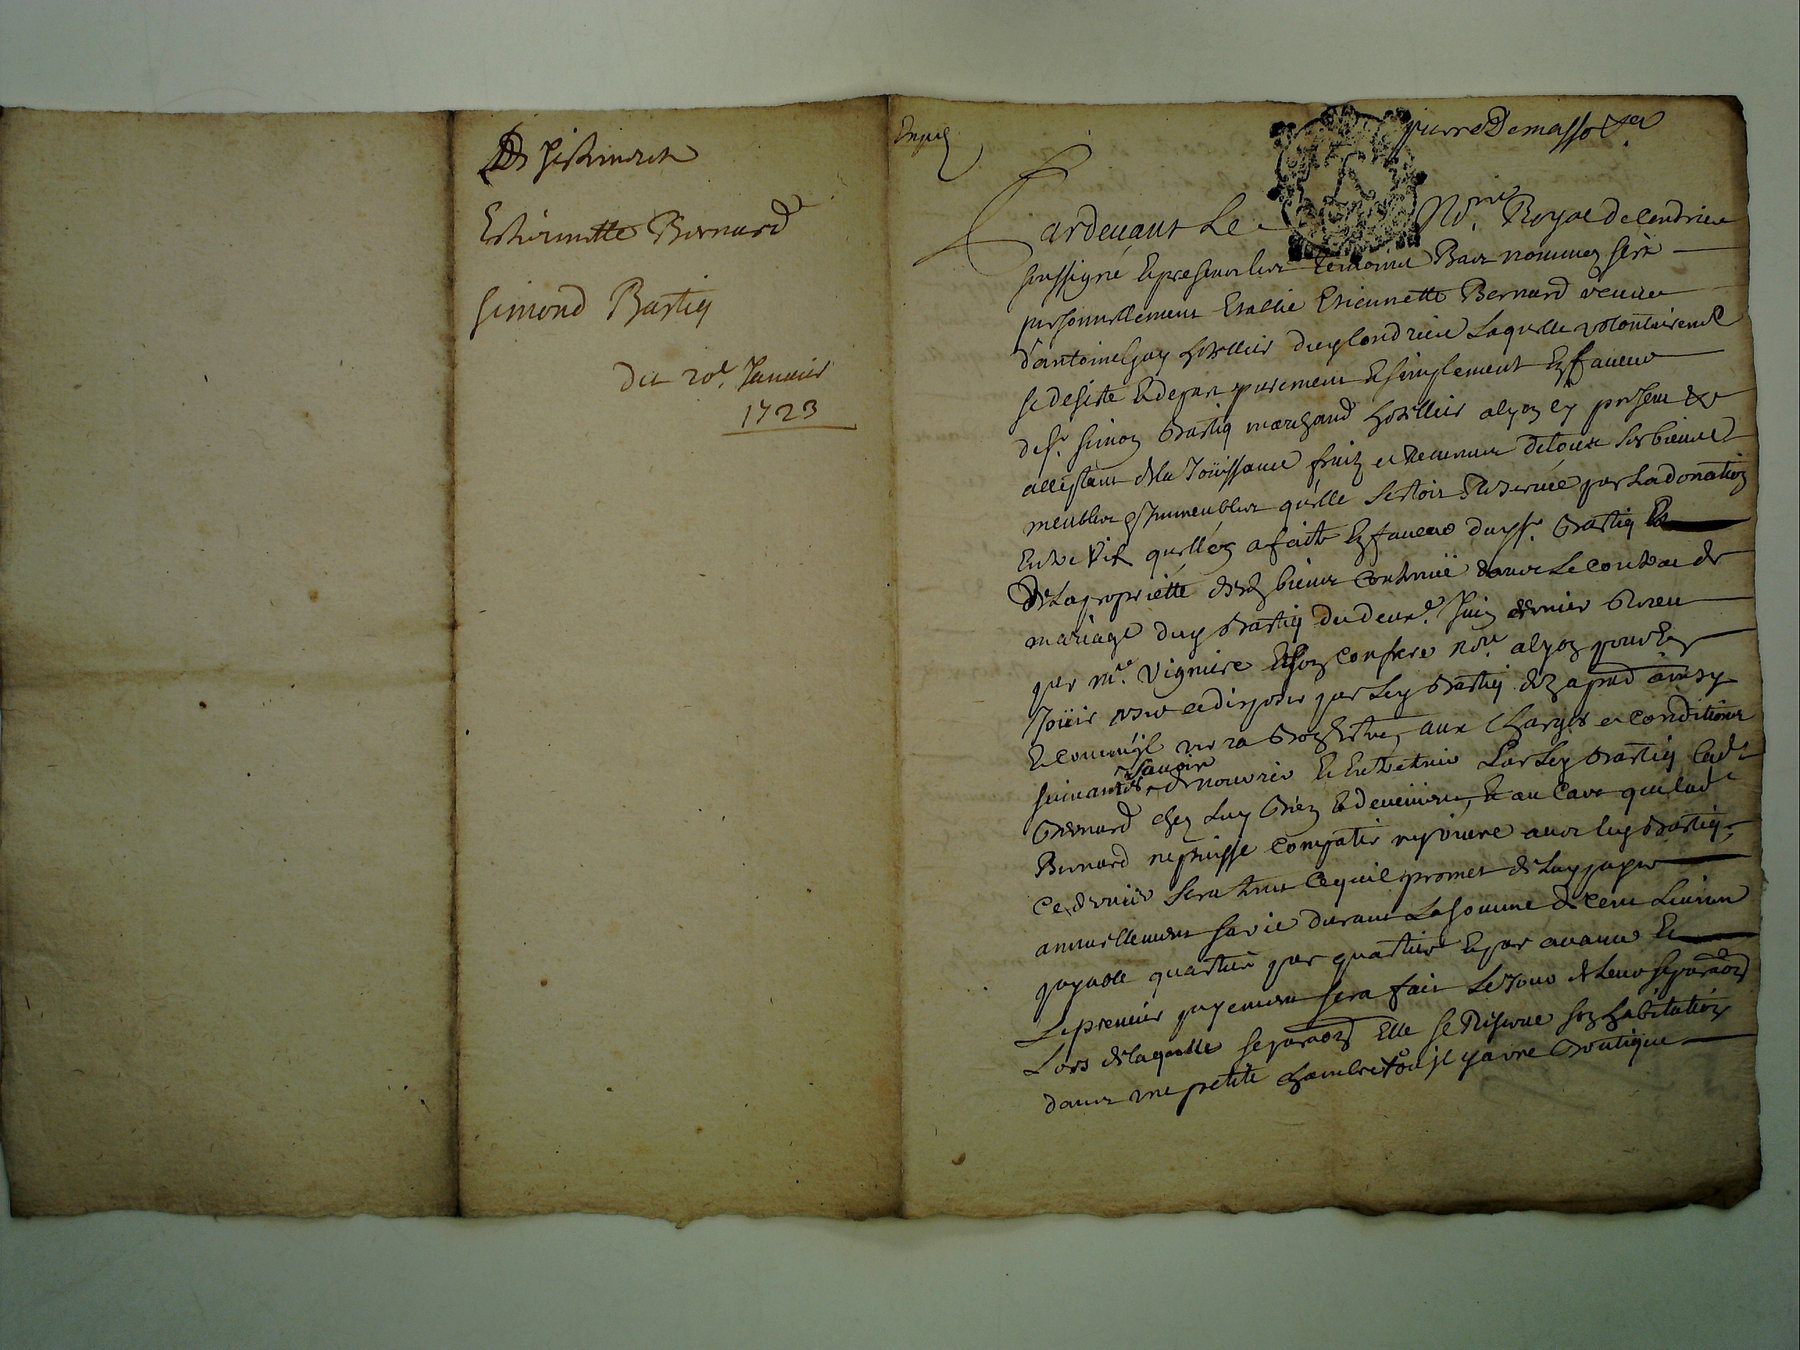 Desistement
Estiennette Bernard
Simond Bastin
Du 20e. Janvier
1723
pierre Demasso
Pardevant Le Nore. Royal de Condrieu
soussigné et presens les temoins Bas nommez s'est
personnellement Establie Estiennette Bernard veuve
d'antoine Gay hostellier dud Condrieu Laquelle volontairement
se desiste et depart purement et simplement En faveur
de Sr. Simon Bastin marchand hostellier a Lyon Cy present et
acceptant de La Joüissance fruitz et Revenus de tous Ses biens
meubles et Immeubles qu'elle S'estoit Reservée par La donation
Entre Vifs quelle en a faite En faveur dud Sr. Bastin
De La proprietté desd biens Contenuë dans Le contrat de
mariage dud Bastin du deuxe. Juin dernier Receu
par Me. Vigniere et son Confrere Nore. a Lyon pour En
Joüir user et disposer par Led Bastin dez a present ainsy
et comm'il verra bon Estre, aux Charges et conditions
suivantes Savoir de nourrir et Entretenir Par Led Bastin lade
Bernard chez Luy bien et deuement, Et au Cas que lade
Bernard ne puisse compatir ny vivre avec led Bastin,
Ce dernier Sera tenu Ce quil promet de Luy payer
annuellement sa vie durant La somme de Cent Livres
payable quartier par quartier et par avance Et
Le premier payement sera fait Le Jour de Leur separaon
Lors de laquelle separaon Elle se Reserve son habitation
dans une petite chambre ou il y a une boutique